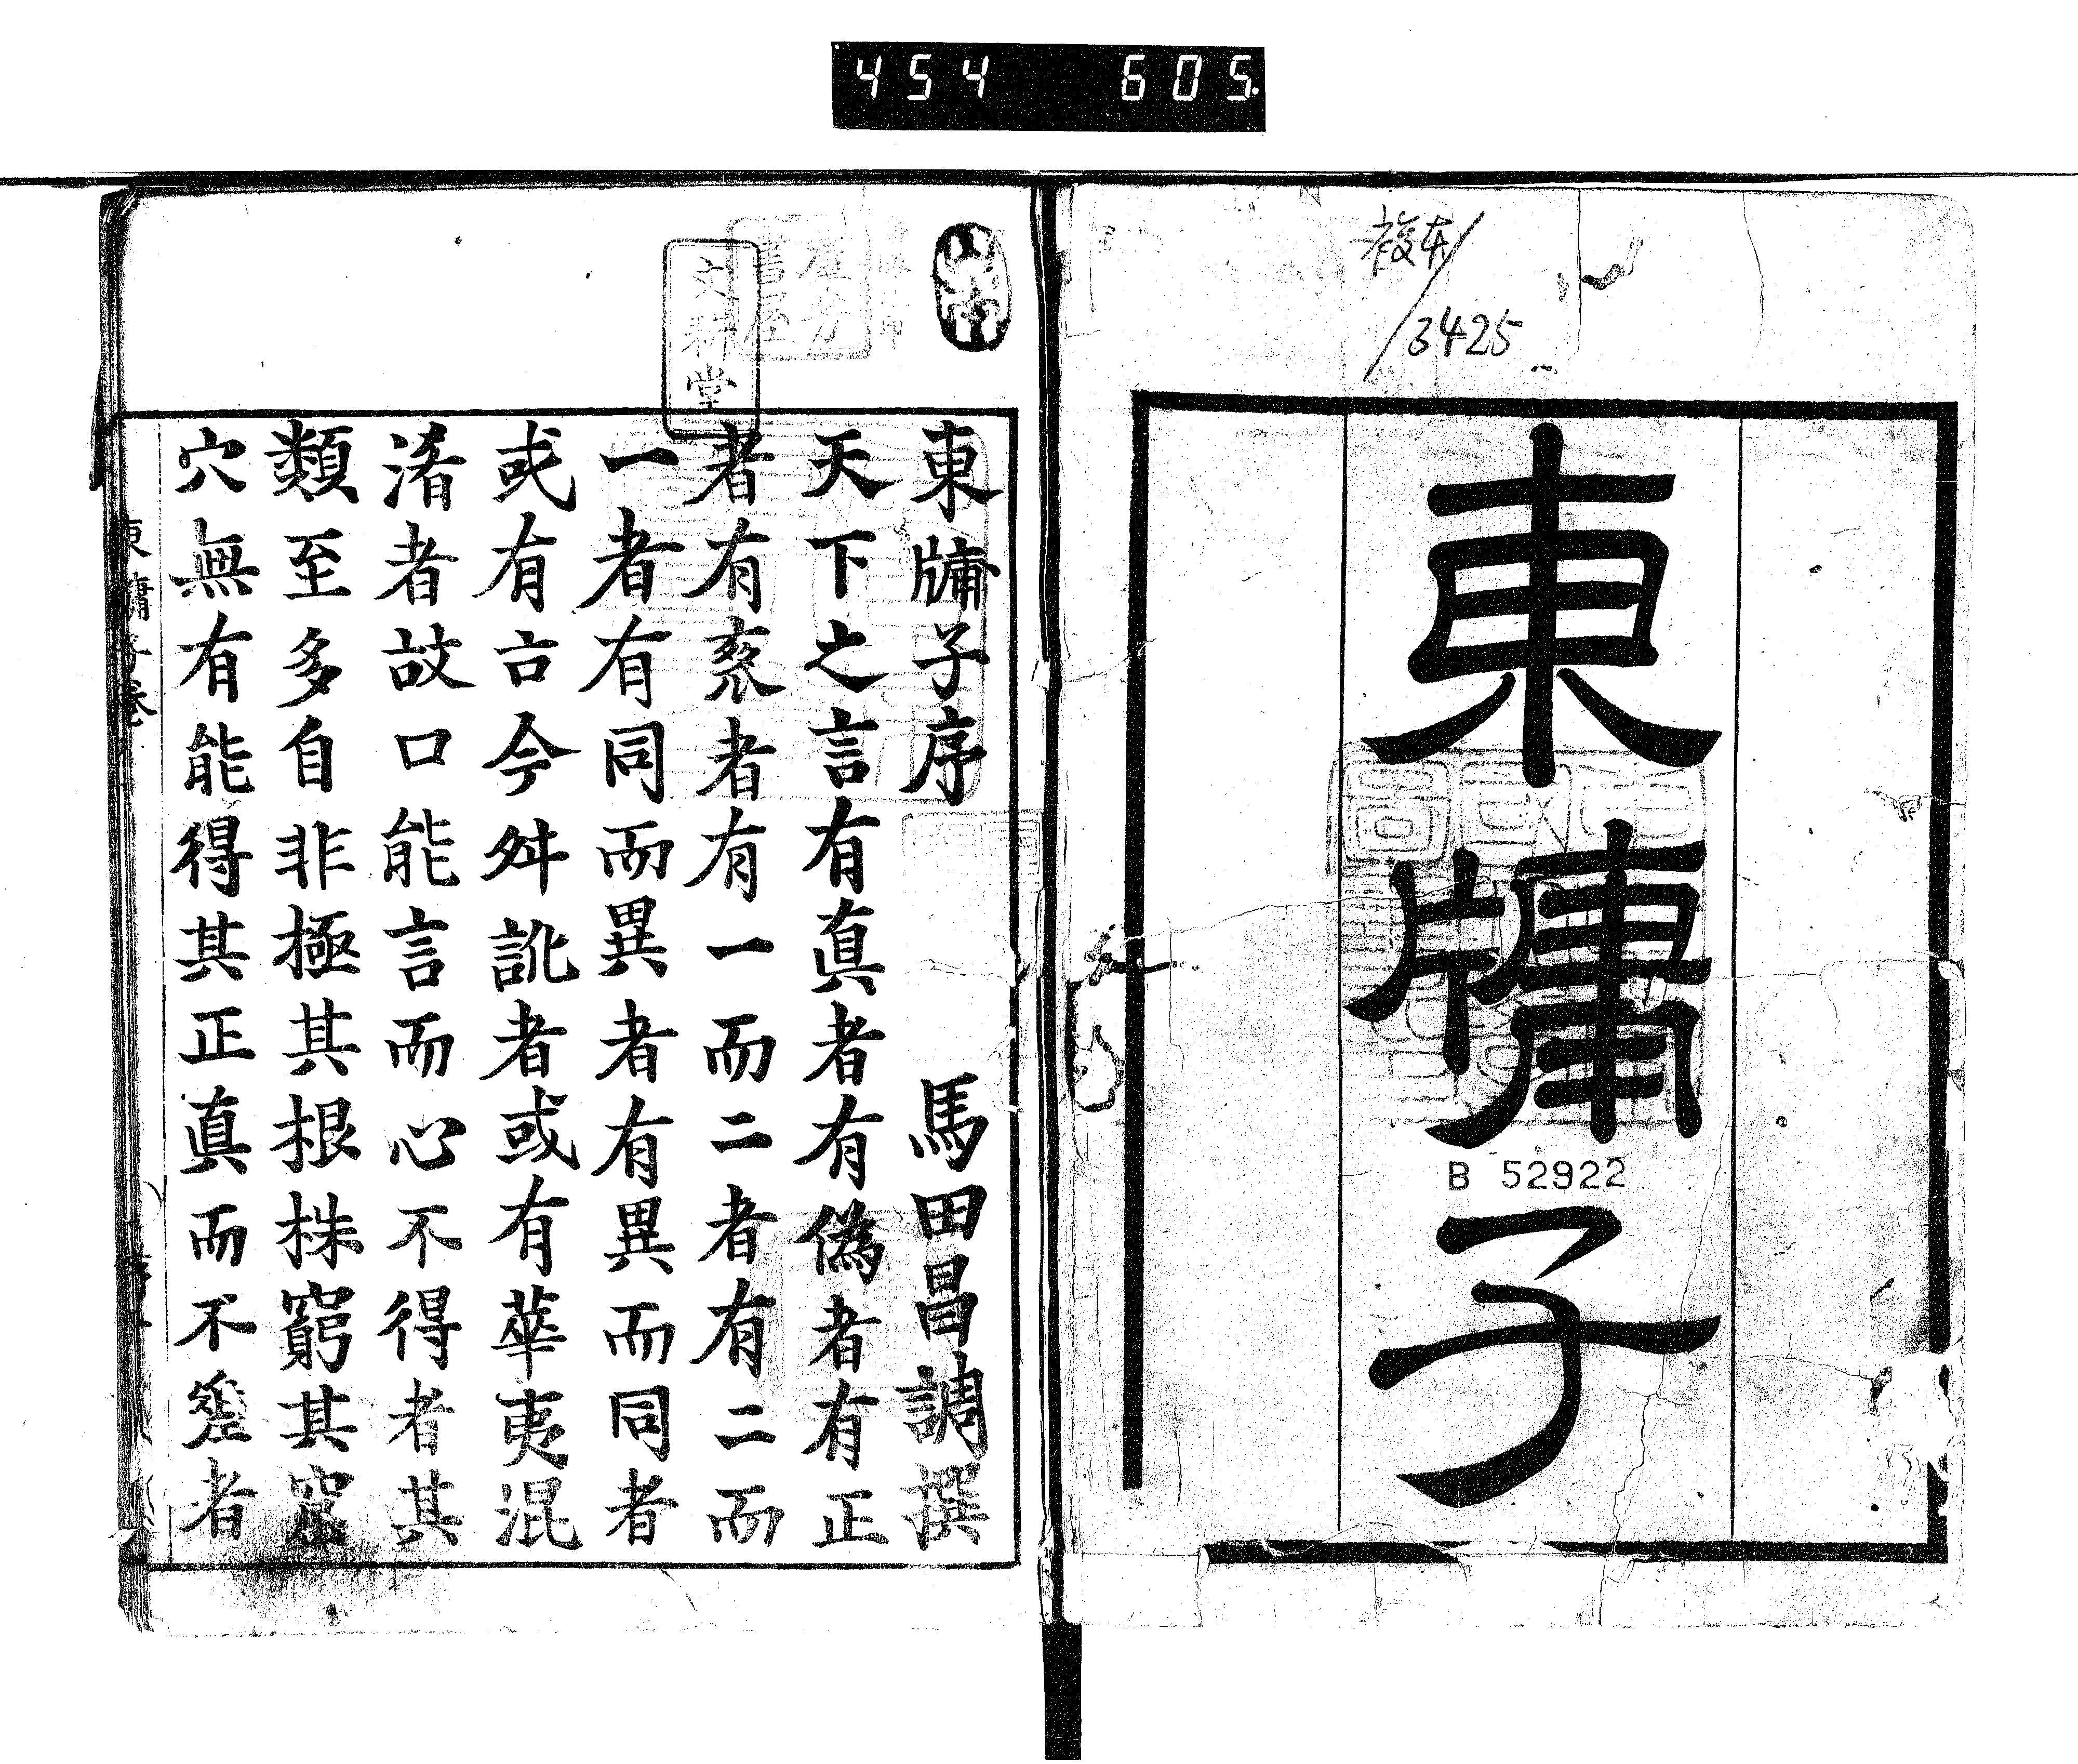 454 605
校本/3425
東牗子
B 52922
文耕堂
東牗子序 馬田昌調撰
天下之言有眞者有偽者有正
者有衺者有一而二者有二而
一者有同而異者有異而同者
或有古今舛訛者或有華夷混
淆者故口能言而心不得者其
類至多自非極其根株窮其窟
穴無有能得其正眞而不差者